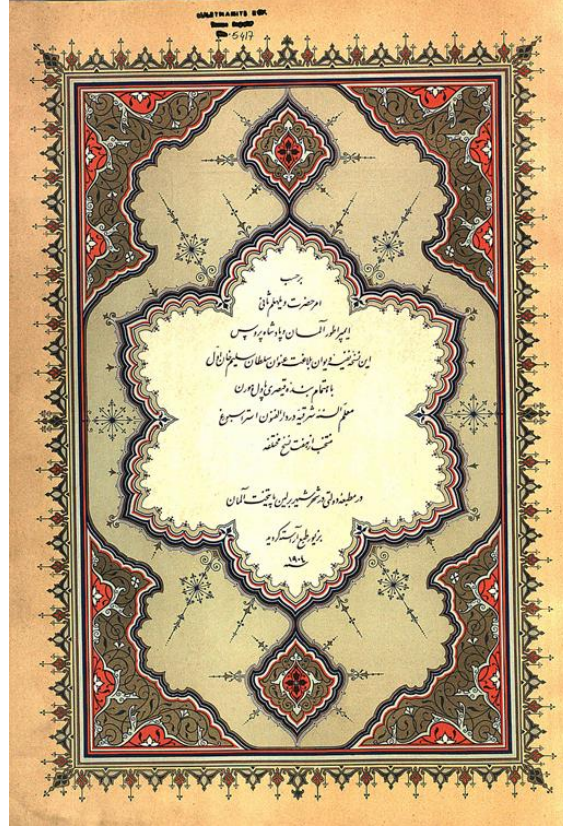 5417
بر حسب
امر حضرت ویلهلم ثانی
ایمپراطور آلمان و پادشاه پروس
این نسخه نفیسهٔ دیوان بلاغت عنوان سلطان سلیم خان اول
با اهتمام بندهٔ قیصری پاول هورن
معلّم السنهٔ شرقیّه در دار الفنون استراسبورغ
منتخب از هفت نسخ مختلفه
در مطبعهٔ دولتی در شهر شهیر برلین پایتخت آلمان
بزیور طبع آراسته گردید
۱۹۰۴